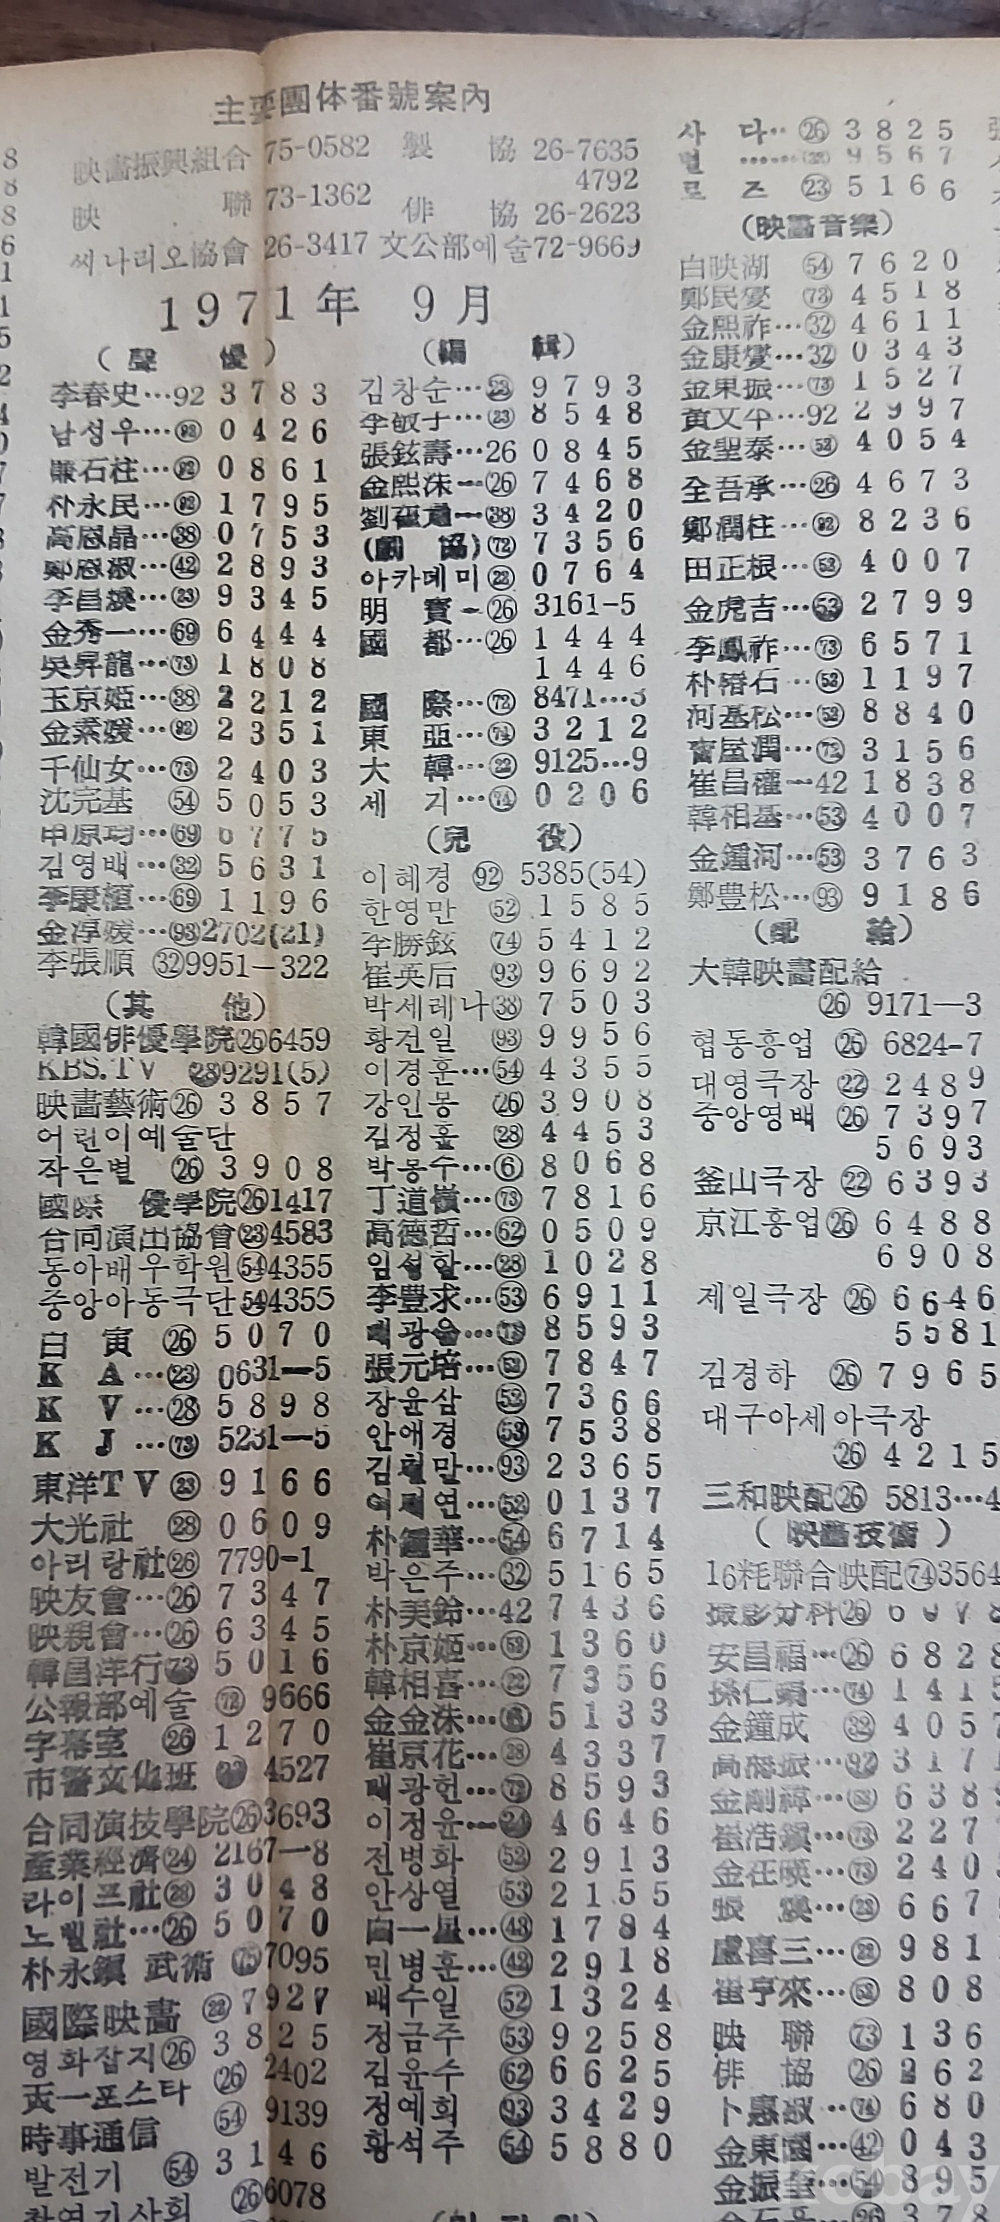 主要團体番號案內
映畵振興組合 75-0582 製 協 26-7635
4792
映 聯 73-1362 俳 協 26-2623
씨나리오協會 26-3417 文公部예술72-9669
1971年 9月
(聲 優)
李春史…92 3783
남성우…㉒ 0426
石柱…㉒ 0861
朴永民…㉒ 1795
高恩晶…㊳ 0753
鄭恩淑…㊷ 2893
李昌渙…㉓ 9345
金秀一…(69) 6444
吳昇龍…(73) 1808
玉京姫…㊳ 2212
金素媛…(92) 2351
千仙女…(73) 2403
沈完基 (54) 5053
申原均…(69) 6775
김영배…㉜ 5631
李康植…(69) 1196
金淳媛…(93)2702(21)
李張順 ㉜9951-322
(其 他)
韓國俳優學院㉖6459
KBS.TV ㉘9291(5)
映畵藝術㉖ 3857
어린이예술단
작은별 ㉖ 3908
國際 優學院㉖1417
合同演出協會㉓4583
동아배우학원(54)4355
중앙아동극단(54)4355
白 寅 ㉖ 5070
K A…㉓ 0631-5
K V…㉘ 5898
K J…(73) 5231-5
東洋TV ㉓ 9166
大光社 ㉘ 0609
아리랑社㉖ 7790-1
映友會…㉖ 7347
映親會…㉖ 6345
韓昌洋行(73) 5016
公報部예술 (72) 9666
字幕室 ㉖ 1270
市警文化班 4527
合同演技學院㉖3693
產業經濟㉔ 2167-8
라이프社㉓ 3048
노벨社…㉖ 5070
朴永鎭 武術 (75)7095
國際映畵 ㉒ 7927
영화잡지㉖ 3825
天一포스타 ㉖ 2402
時事通信 (54) 9139
발전기 (54) 3146
㉖6078
(編 輯)
김창순…㉓ 9793
李敏子…㉓ 8548
張鉉壽…26 0845
金熙洙—㉖ 7468
劉 —㊳ 3420
(劇 協)(72) 7356
아카데미㉓ 0764
明 寶—㉖ 3161-5
國 都…㉖ 1444
1446
國 際…(72) 8471…3
東 亞…(74) 3212
大 韓…㉒ 9125…9
세 기…(74) 0206
(兒 役)
이혜경 (92) 5385(54)
한영만 (52) 1585
李勝鉉 (74) 5412
崔英后 (93) 9692
박세레나㊳ 7503
황건일 (93) 9956
이경훈…(54) 4355
강인몽 ㉖ 3908
김정훈 ㉘ 4453
박몽수…⑥ 8068
丁道嶺…(73) 7816
高德哲…(62) 0509
임성할…㉓ 1028
李豊求…(53) 6911
광 … 8593
張元培…(52) 7847
장윤삼 (52) 7366
안애경 (53) 7538
김 만…(93) 2365
연…(52) 0137
朴鍾華…(54) 6714
박은주…㉜ 5165
朴美鈴…42 7436
朴京姬…(53) 1360
韓相喜…㉒ 7356
金金洙… 5133
崔京花…㉘ 4337
배광헌…(73) 8593
이정윤—㉔ 4646
전병화 (52) 2913
안상열 (53) 2155
白一星…㊸ 1784
민병훈…㊷ 2918
배수일 (52) 1324
정금주 (53) 9258
김윤수 (62) 6625
정예희 (93) 3429
황석주 (54) 5880
사 다…㉖ 3825
멀 …… 9567
로 즈 ㉓ 5166
(映畵音樂)
白映湖 (54) 7620
鄭民燮 (73) 4518
金熙祚…㉜ 4611
金康燮…㉜ 0343
金果振…(73) 1527
黃文平…92 2997
金聖泰…(52) 4054
全吾承…㉖ 4673
鄭潤柱…(92) 8236
田正根…(53) 4007
金虎吉…(53) 2799
李鳳祚…(73) 6571
朴 石…(52) 1197
河基松…(52) 8840
潤…(72) 3156
崔昌權—42 1838
韓相基…(53) 4007
金鍾河…(53) 3763
鄭豊松…(93) 9186
(配 給)
大韓映畵配給
㉖ 9171—3
협동흥업 ㉖ 6824-7
대영극장 ㉒ 2489
중앙영배 ㉖ 7397
5693
釜山극장 ㉒ 6393
京江흥업㉖ 6488
6908
제일극장 ㉖ 6646
5581
김경하 ㉖ 7965
대구아세아극장
㉖ 4215
三和映配㉖ 5813…4
(映畵技術)
16粍聯合映配(74)3564
撮影分科㉖
安昌福…㉖ 6828
孫仁 …(74) 141
金鐘成 ㉜ 4057
高 振…(92) 317
金剛 … 638
崔浩鎭…(73) 227
金在暎…(73) 240
張 煥…㉓ 667
盧喜三…㉒ 981
崔亨來…(53) 808
映 聯 (73) 136
俳 協 ㉖ 262
卜惠淑…(74) 680
金東國…㊷ 043
金振 …(54) 895
㉖ 378
kobay